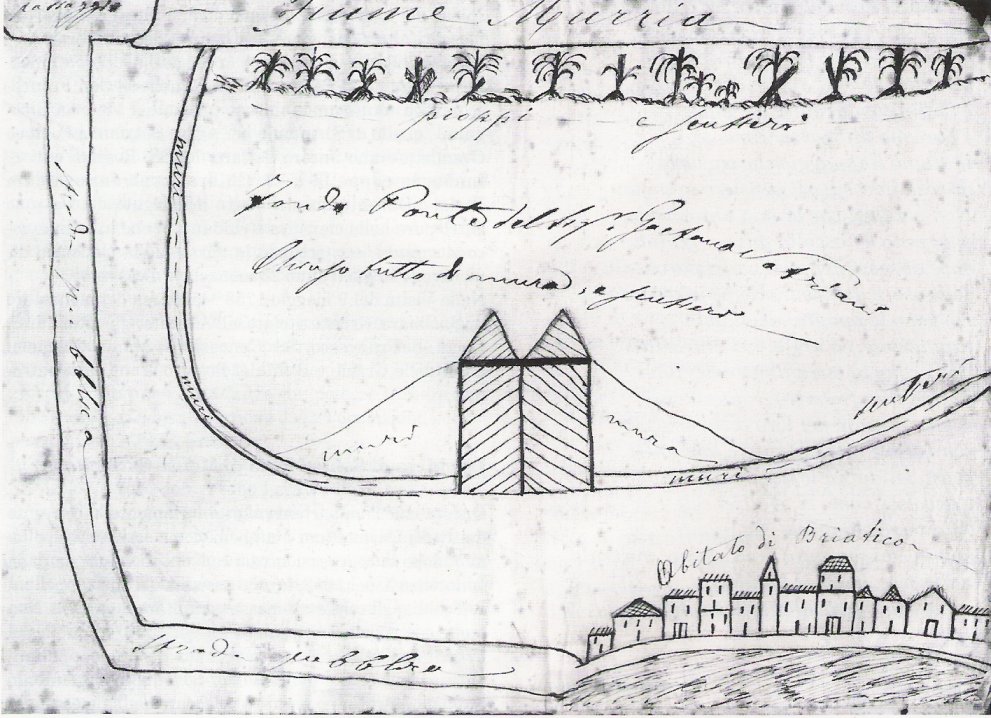 passaggio
Fiume Murria
pioppi e sentieri
muri
Strada pubblica
Fondo Ponte del Sig.r Gaetano Satriano
Chiuso tutto di mura, e sentiero
muri
muri
mura
muri
sentieri
Abitato di Briatico
Strada pubblica